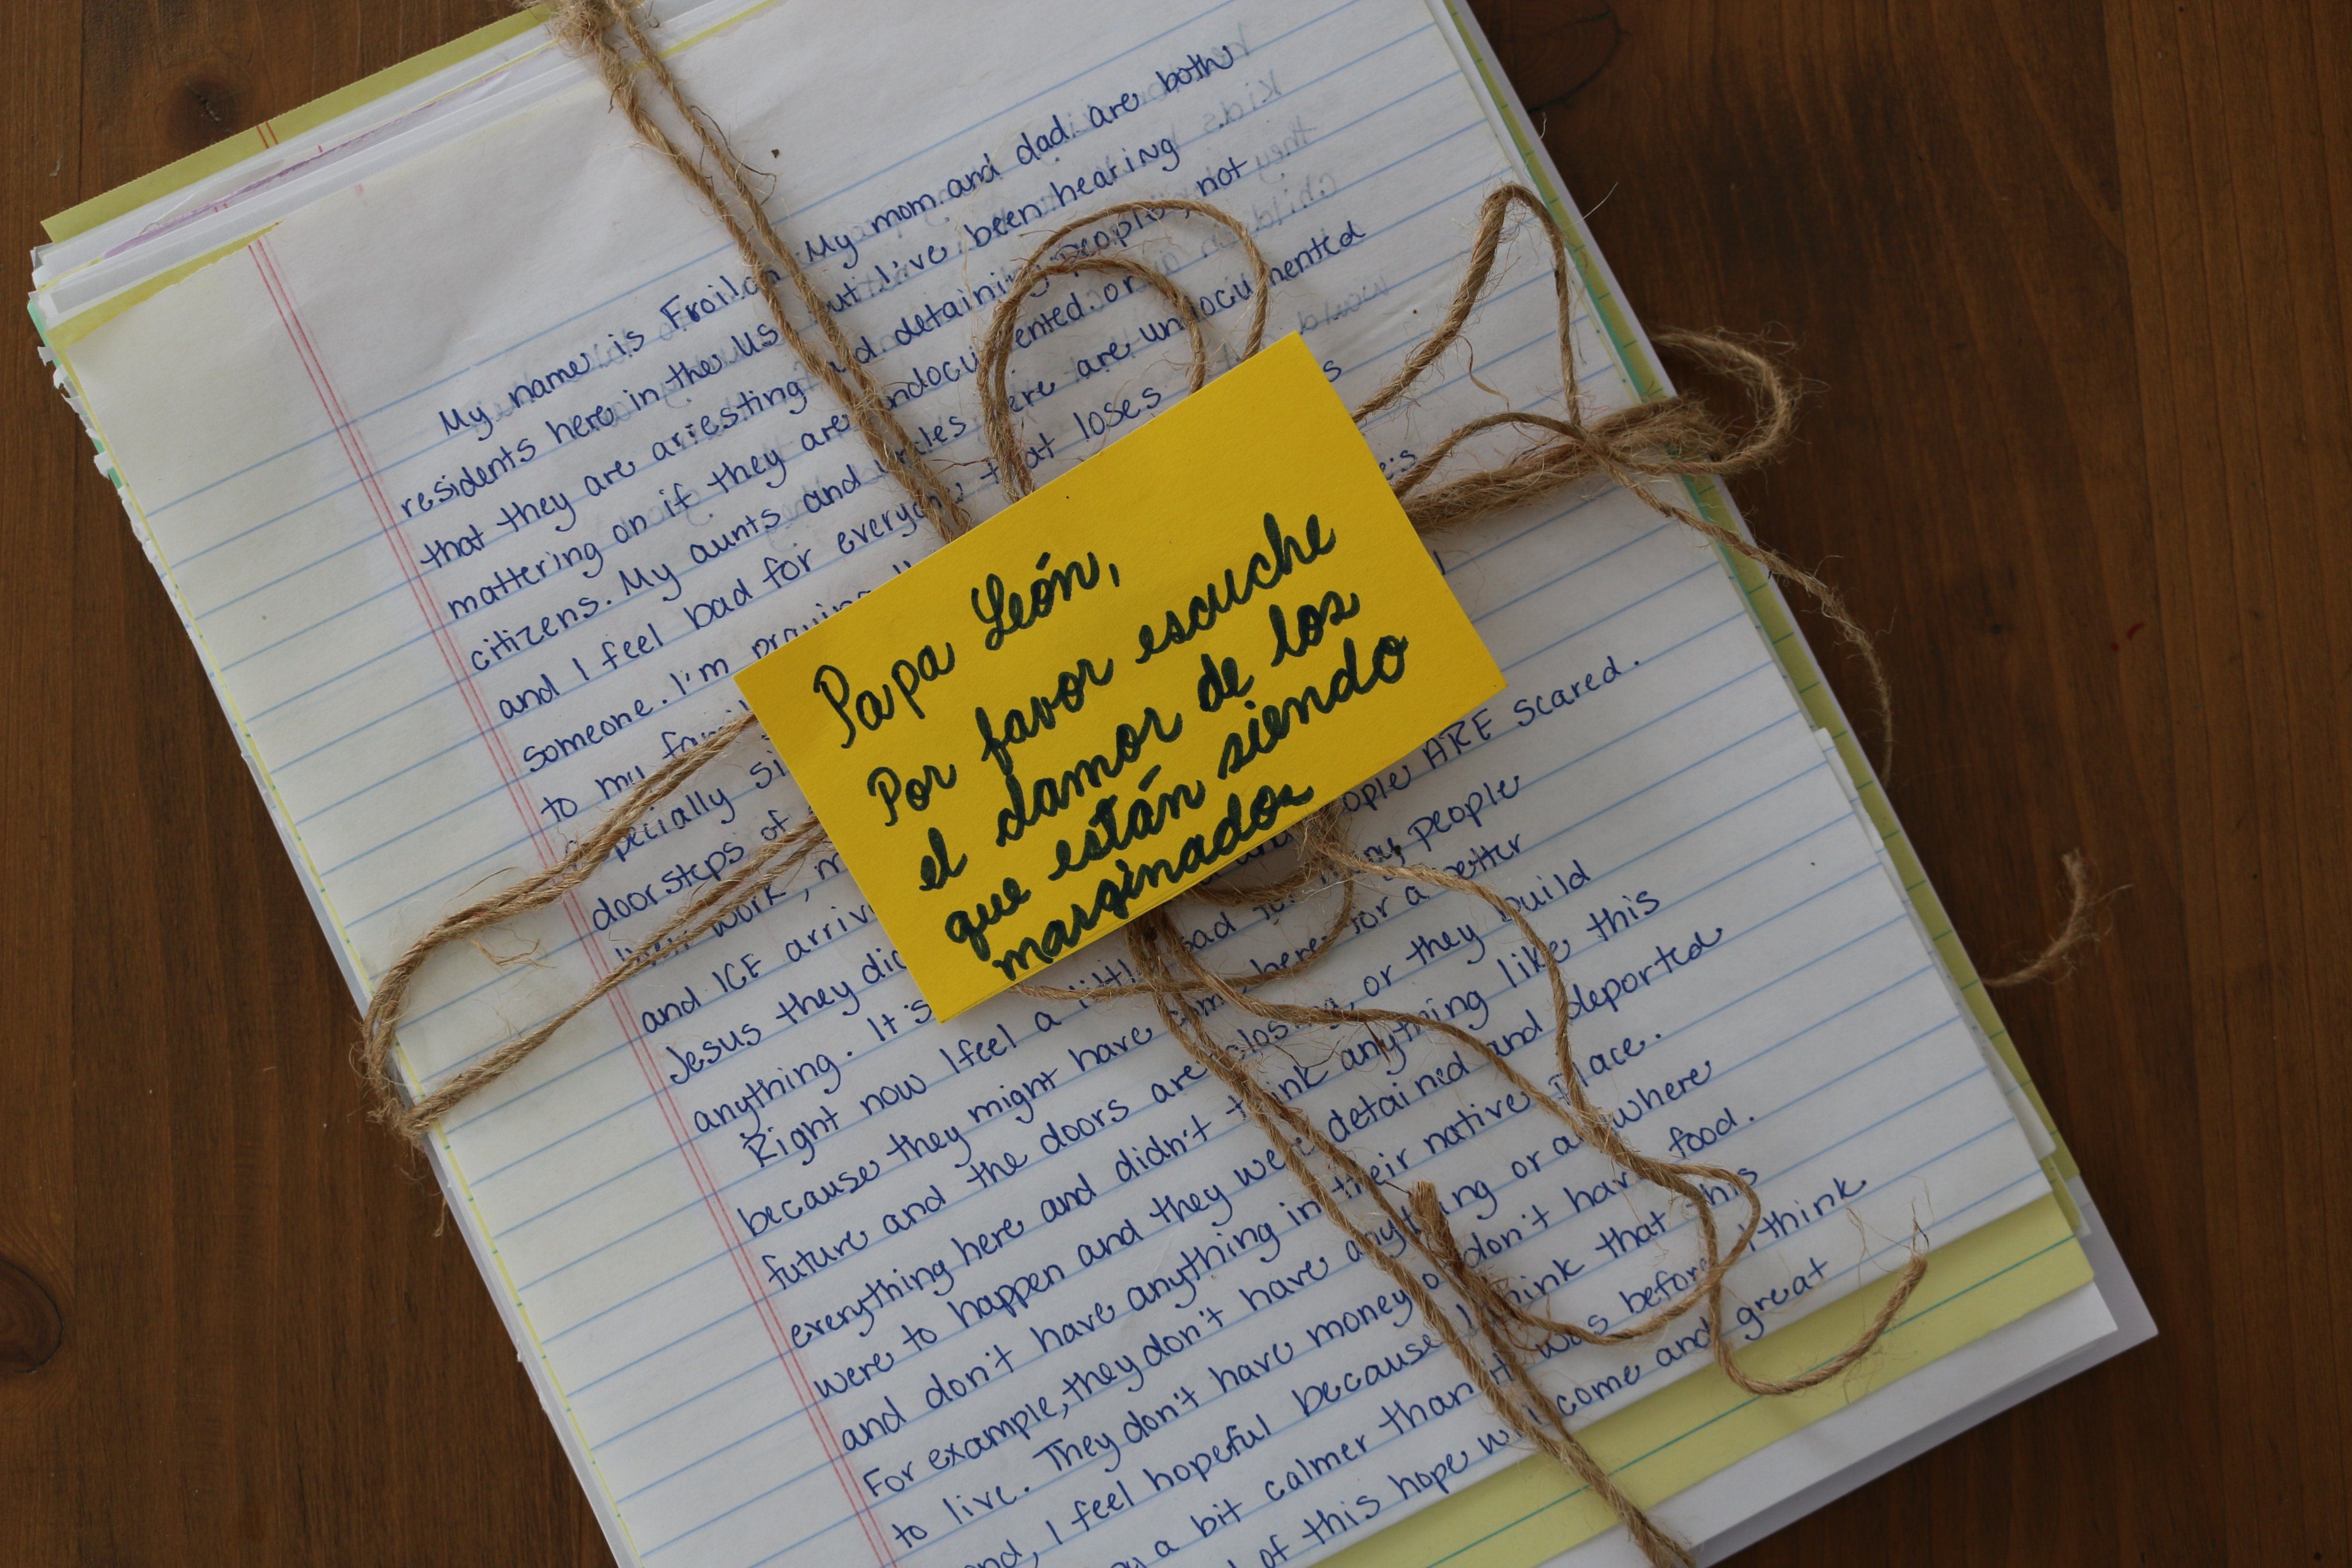 My name is Froilan. My mom and dad are both
residents here in the US but I've been hearing
that they are arresting and detaining people, not
mattering on if they are undocumented or
citizens. My aunts and uncles here are undocumented
and I feel bad for everyone that loses
someone. I'm praying
to my family
especially
doorsteps of
their work,
and ICE arrive
Jesus they did
anything. It's
people ARE scared.
Right now I feel a little bad for my people
because they might have come here for a better
future and the doors are closing, or they build
everything here and didn't think anything like this
were to happen and they were detained and deported
and don't have anything in their native place.
For example, they don't have anything or anywhere
to live. They don't have money or don't have food.
and, I feel hopeful because I think that this
a bit calmer than it was before. I think
of this hope will come and great
Papa León,
Por favor escuche
el clamor de los
que están siendo
marginados